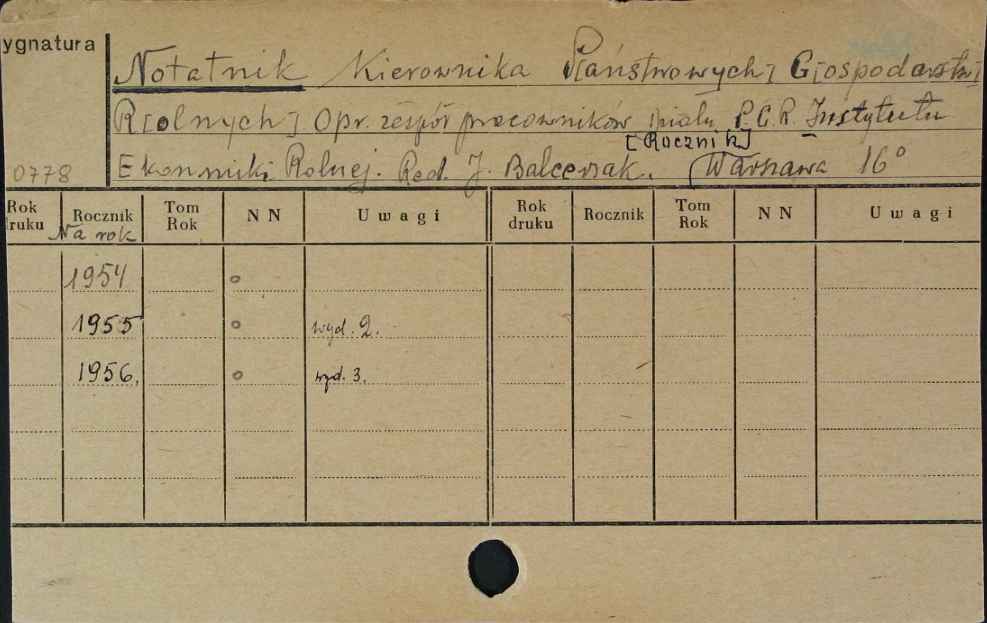 ygnatura
Notatnik Kierownika P[aństwowych] G[ospodarstw]
R[olnych] Opr. zespół pracowników Działu P.G.R. Instytutu
[Rocznik]
0778 Ekonomiki Rolnej. Red. J. Balcerzak. Warszawa 16°
Rok ruku Rocznik Tom Rok NN Uwagi Rok druku Rocznik Tom Rok NN Uwagi
Na rok
1954 o
1955 o wyd. 2.
1956. o wyd. 3.